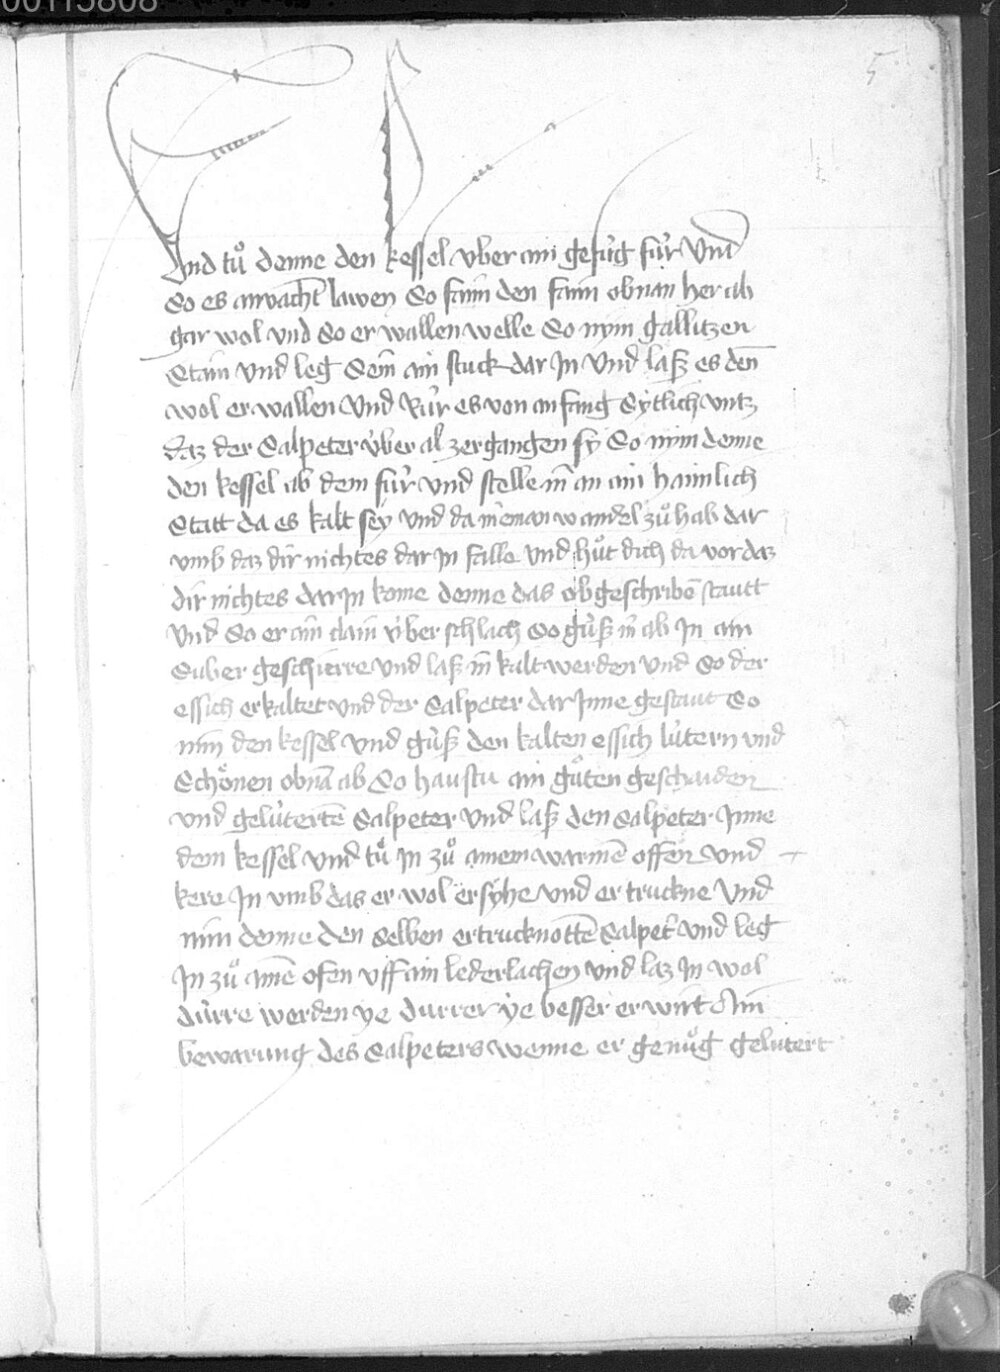 00115808
5
Vnd tuͦ denne den kessel vber ain gefuͤg fuͤr Vnd
So es anvacht lawen So faim den faim obnan her ab
gar wol vnd so er wallen welle So nym gallitzen
Stain Vnd leg Sein̄ ain stuck dar In Vnd lasß es den̄
wol er wallen Vnd Ruͤr es von anfang Sytlich vntz
daz der Salpeter vͤber al zergangen sy So nym denne
den kessel ab dem fuͤr vnd stelle in̄ an ain haimlich
Statt da es kalt sey Vnd da nieman wandel zuͦ hab dar
vmb daz dir nichtes dar In falle Vnd huͤt dich da vor daz
dir nichtes dar In kome denne das obgeschribē stautt
Vnd So er ain clain vͤber schlach So guͤß in̄ ab In ain
Suber geschierre vnd laß in̄ kalt werden vnd So der
essich erkaltet vnd der Salpeter dar Inne gestaut So
nim den kessel Vnd guͤß den kalten essich luͤtern vnd
Schoͤnen obnā ab So haustu ain guͦten geschaiden
vnd geluͤtertē Salpeter Vnd laß den Salpeter Inne
dem kessel Vnd tuͦ In zuͦ ainem warmē offen Vnd
kere In vmb das er wol ersyhe vnd er truckne Vnd
nim denne den selben ertrucknottē Salpet̄ Vnd leg
In zuͦ ainē ofen vff ain lederlachen vnd laz In wol
duͤrre werden ye durrer ye besser er wirt Ain
bewarung des Salpeters wenne er genuͦg gelutert